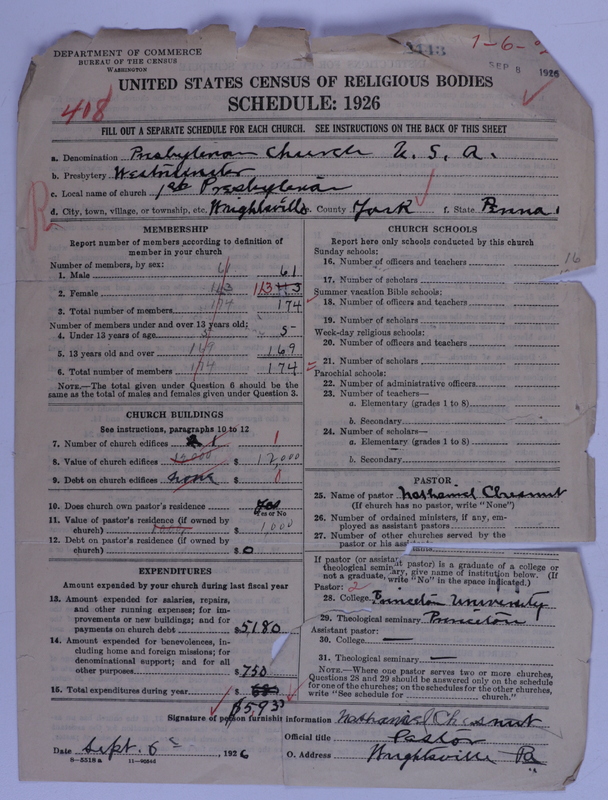 DEPARTMENT OF COMMERCE
BUREAU OF THE CENSUS
WASHINGTON
SEP 8 1926
UNITED STATES CENSUS OF RELIGIOUS BODIES
SCHEDULE: 1926
408
FILL OUT A SEPARATE SCHEDULE FOR EACH CHURCH. SEE INSTRUCTIONS ON THE BACK OF THIS SHEET
a. Denomination Presbyterian Church U. S. A.
b. Presbytery Westminster
c. Local name of church 1st Presbyterian
d. City, town, village, or township, etc. Wrightsville e. County York f. State Penna.
MEMBERSHIP
Report number of members according to definition of
member in your church
Number of members, by sex:
1. Male 61 61
2. Female 113 113 113
3. Total number of members 174 174
Number of members under and over 13 years old:
4. Under 13 years of age 5 5
5. 13 years old and over 169 169
6. Total number of members 174 174
NOTE.—The total given under Question 6 should be the
same as the total of males and females given under Question 3.
CHURCH BUILDINGS
See instructions, paragraphs 10 to 12
7. Number of church edifices 1
8. Value of church edifices $ 12,000
9. Debt on church edifices none $ 0
10. Does church own pastor's residence Yes
Yes or No
11. Value of pastor's residence (if owned by
church) $
12. Debt on pastor's residence (if owned by
church) $ 0
EXPENDITURES
Amount expended by your church during last fiscal year
13. Amount expended for salaries, repairs,
and other running expenses; for im-
provements or new buildings; and for
payments on church debt $ 5180
14. Amount expended for benevolences, in-
cluding home and foreign missions; for
denominational support; and for all
other purposes $ 750
15. Total expenditure during year $
CHURCH SCHOOLS
Report here only schools conducted by this church
Sunday schools:
16. Number of officers and teachers 16
17. Number of scholars
Summer vacation Bible schools:
18. Number of officers and teachers
19. Number of scholars
Week-day religious schools:
20. Number of officers and teachers
21. Number of scholars
Parochial schools:
22. Number of administrative officers
23. Number of teachers—
a. Elementary (grades 1 to 8)
b. Secondary
24. Number of scholars—
a. Elementary (grades 1 to 8)
b. Secondary
PASTOR
25. Name of pastor Nathaniel Chesnut
(If church has no pastor, write "None")
26. Number of ordained ministers, if any, em-
ployed as assistant pastors
27. Number of other churches served by the
pastor or his
If pastor (or assistant pastor) is a graduate of a college or
theological seminary, give name of institution below. (If
not a graduate, write "No" in the space indicated.)
Pastor: 2
28. College Princeton University
29. Theological seminary Princeton
Assistant pastor:
30. College —
31. Theological seminary —
NOTE.—Where one pastor serves two or more churches,
Questions 28 and 29 should be answered only on the schedule
for one of the churches; on the schedules for the other churches,
write "See schedule for church."
Signature of person furnishing information Nathaniel Chesnut
Official title Pastor
Date Sept. 6 1926 P. O. Address Wrightsville Pa
8—5518a 11—90846